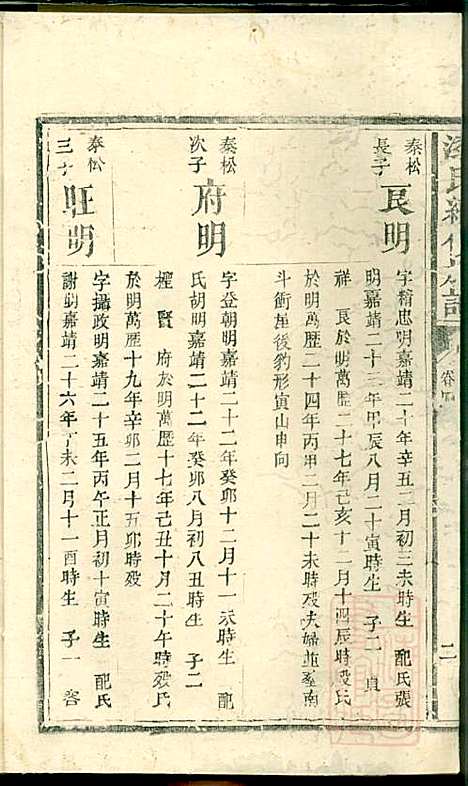 氏 卷
二
泰松
長子
良明
字精忠明嘉靖二十年辛丑二月初三未時生 配氏張
明嘉靖二十三年甲辰八月二十寅時生 子二 貞
祥 良於明萬歷二十七年己亥十二月十四辰時歿氏
於明萬歷二十四年丙申二月二十未時歿夫婦並塟南
斗衝屋後豹形寅山申向
泰松
次子
府明
字登朝明嘉靖二十二年癸卯十二月十一未時生 配
氏胡明嘉靖二十二年癸卯八月初八丑時生 子二
賢 府於明萬歷十七年己丑十月二十午時歿氏
於明萬歷十九年辛卯二月十五卯時歿
泰松
三子
旺明
字攝政明嘉靖二十五年丙午正月初十寅時生 配氏
謝明嘉靖二十六年丁未二月十一酉時生 子一 容